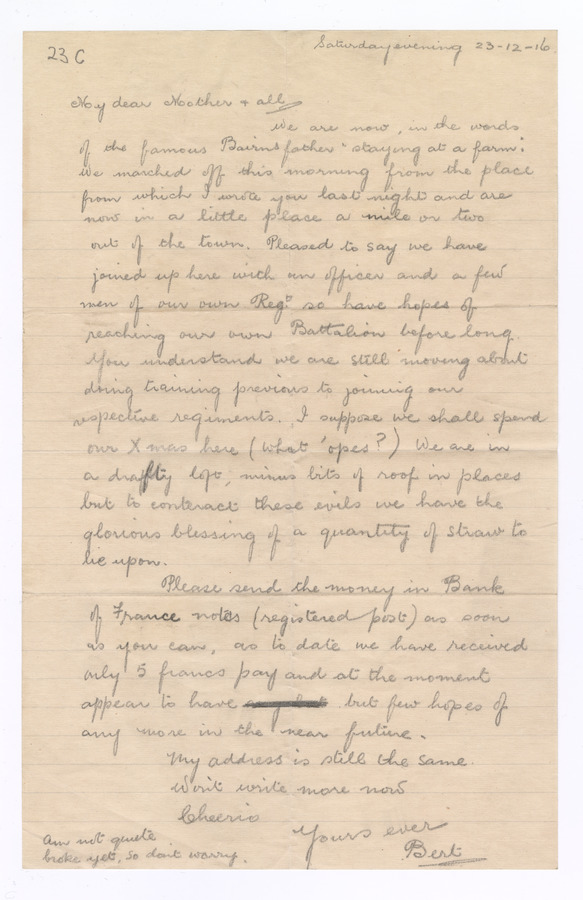 23 C
Saturday evening 23-12-16
My dear Mother & all
We are now, in the words
of the famous Bairnsfather "staying at a farm".
We marched off this morning from the place
from which I wrote you last night and are
now in a little place a mile or two
out of the town. Pleased to say we have
joined up here with an officer and a few
men of our own Regt so have hopes of
reaching our own Battalion before long.
You understand we are still moving about
doing training previous to joining our
respective regiments. I suppose we shall spend
our Xmas here (What 'opes?) We are in
a drafty loft, minus bits of roof in places
but to conteract these evils we have the
glorious blessing of a quantity of straw to
lie upon.
Please send the money in Bank
of France notes (registered post) as soon
as you can, as to date we have received
only 5 francs pay and at the moment
appear to have but few hopes of
any more in the near future.
My address is still the same.
Won't write more now
Cheerio
Yours ever
Bert
Am not quite
broke yet, so don't worry.